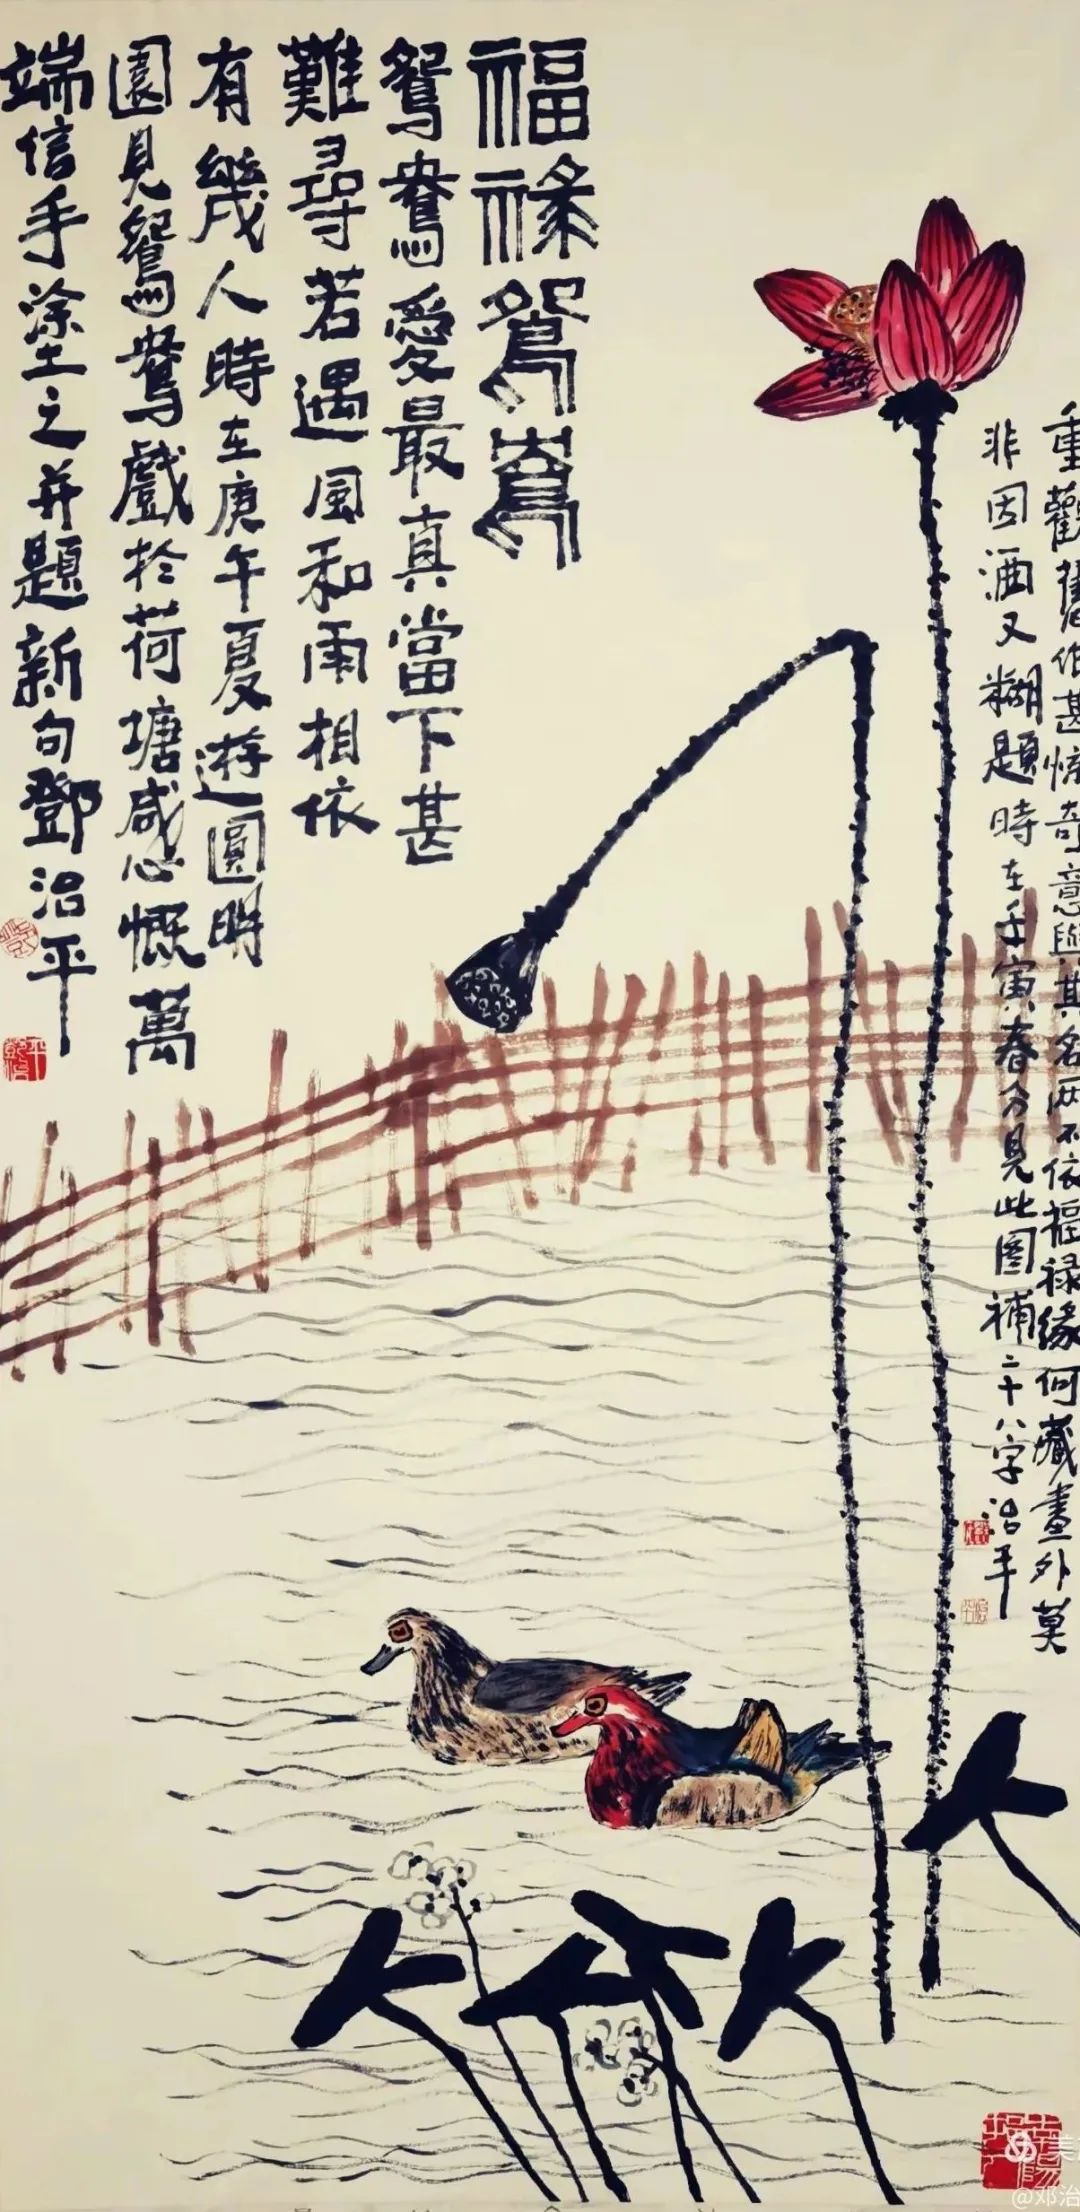 重觀舊作甚惊奇意與其名两不依福禄緣何藏畫外莫
非因酒又糊題時在壬寅春分見此图補二十八字治平
福祿鴛鴦
鴛鴦愛最真當下甚
難尋若遇風和雨相依
有幾人時在庚午夏遊圓明
園見鴛鴦戲於荷塘感慨萬
端信手塗之并題新句鄧治平
美
@邓治